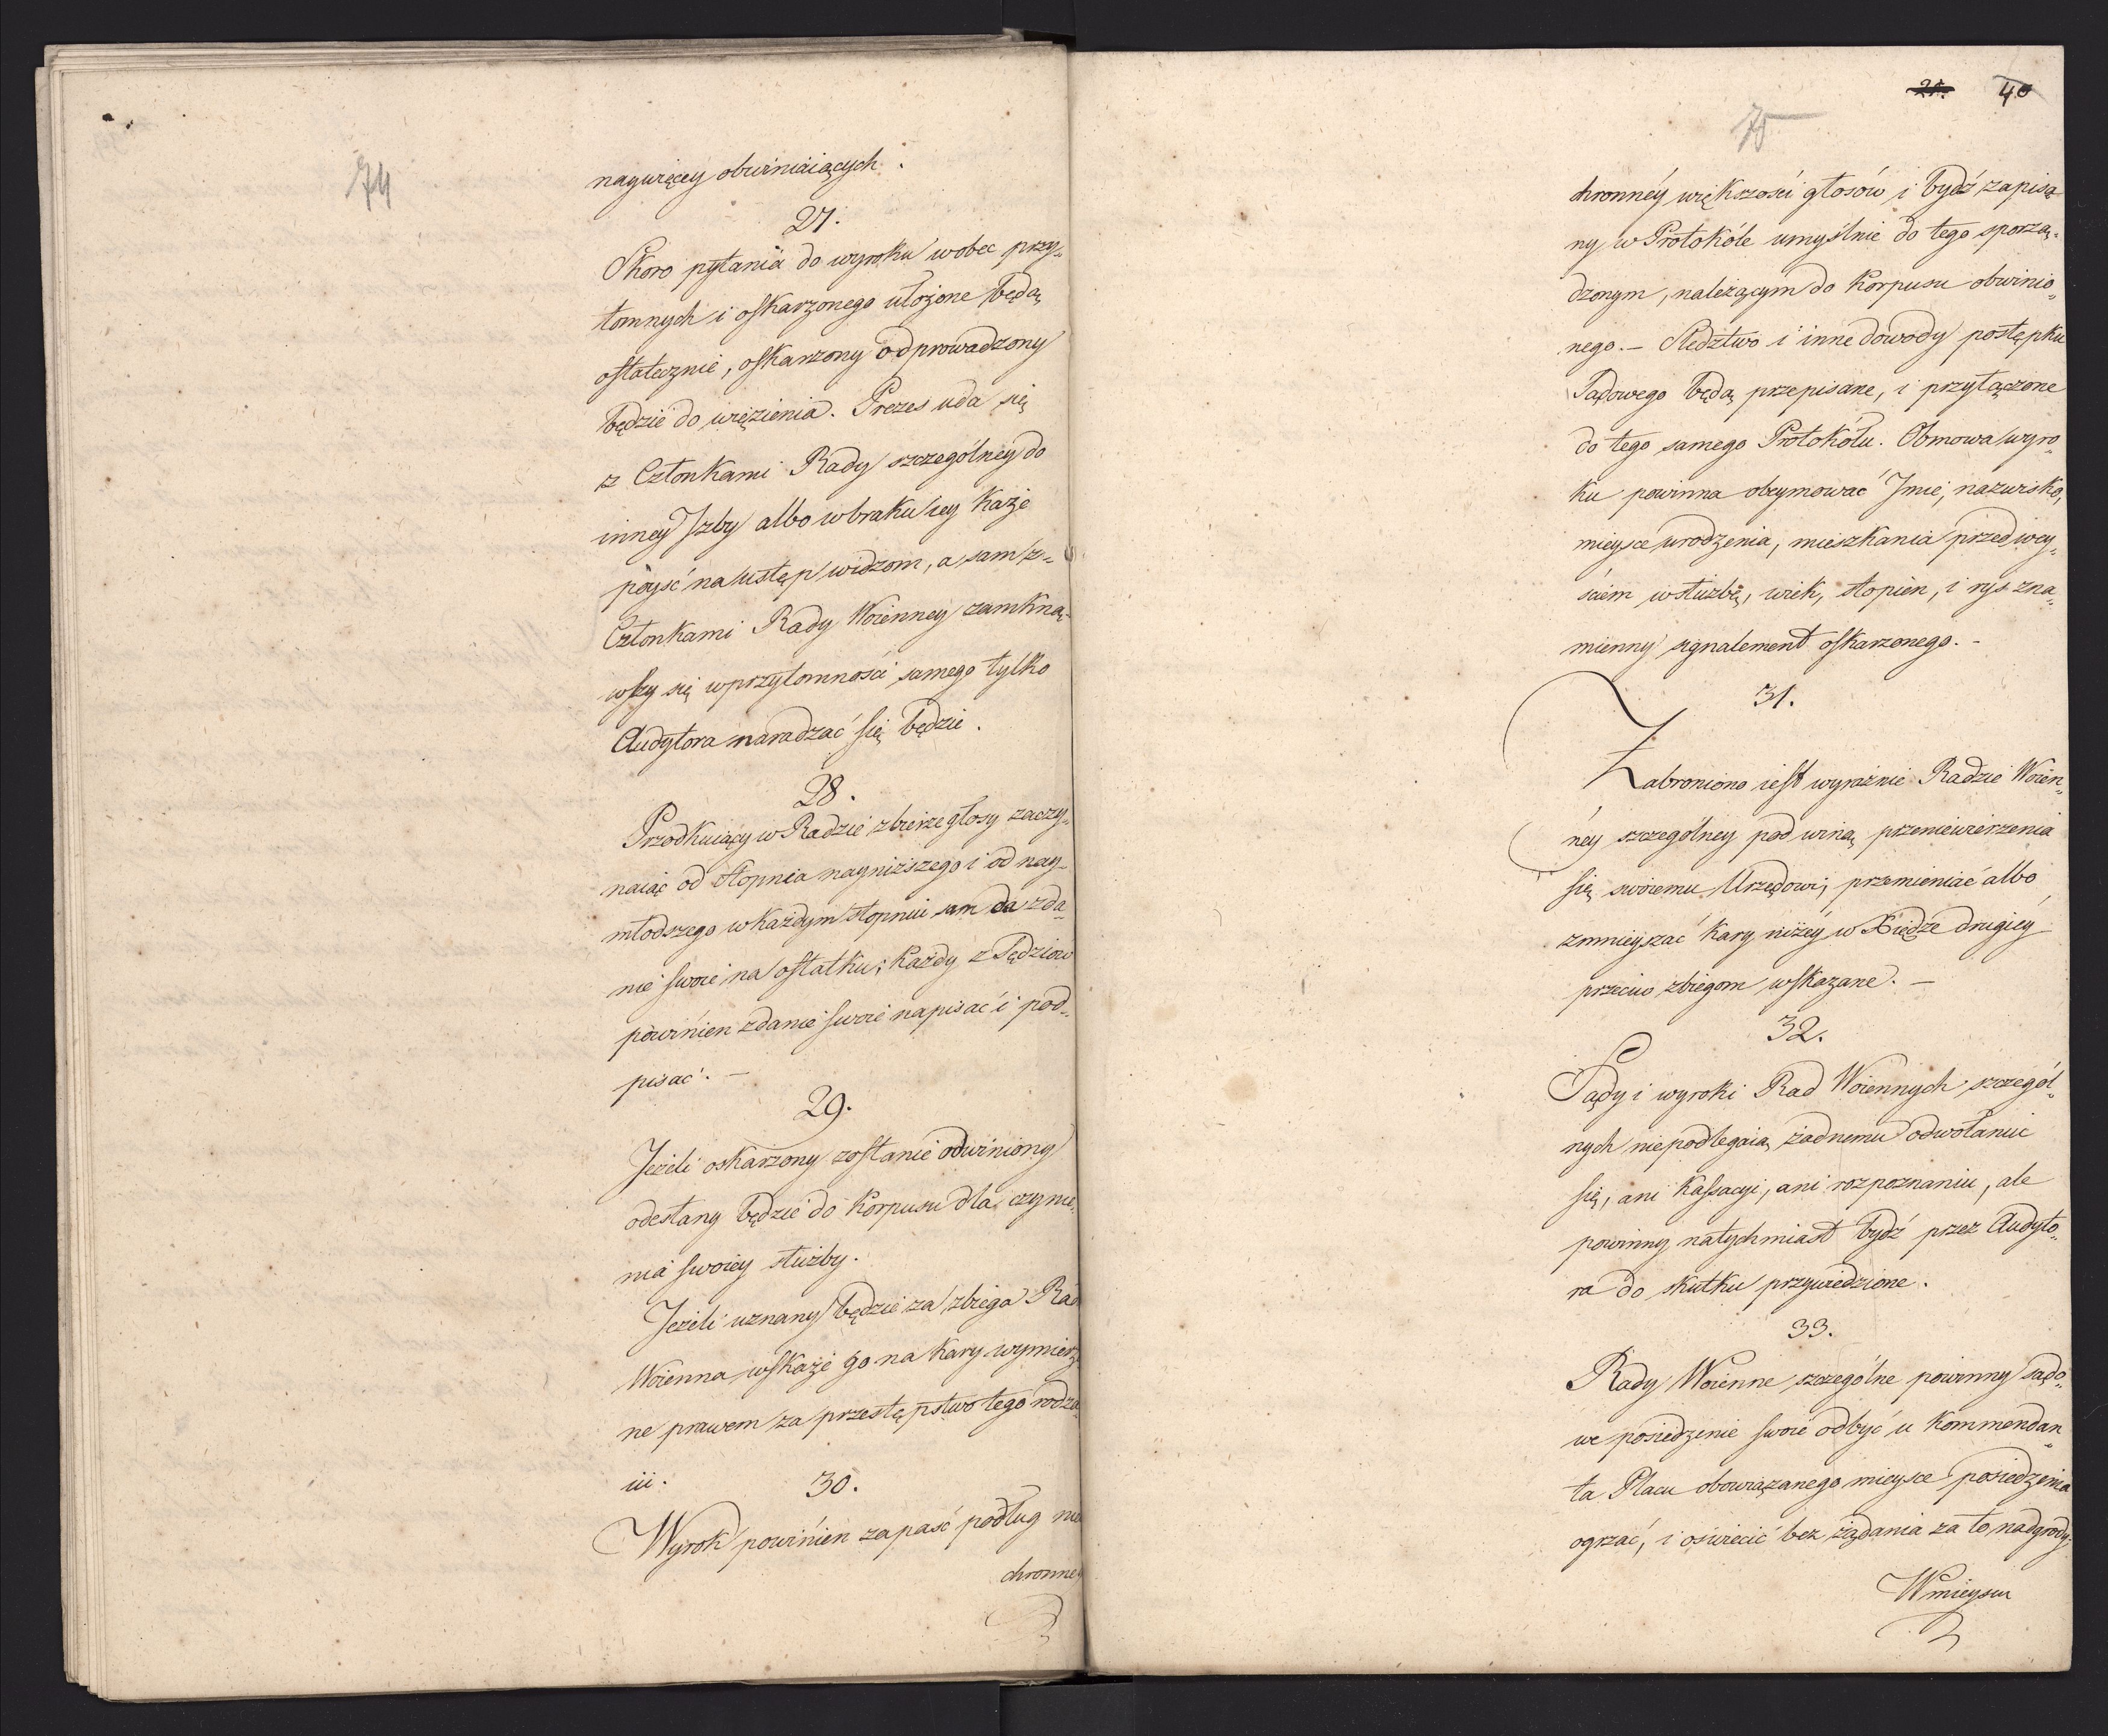 74
naywięcey obwiniaiących.
27.
Skoro pytania do wyroku wobec przy„
tomnych i oskarżonego ułożone będą
ostatecznie, oskarżony odprowadzony
będzie do więzienia. Prezes uda się
z Członkami Rady szczególney do
inney Jzby albo wbraku iey każe
póyść na ustęp widzom, a sam z„
Członkami Rady Woienney zamkną„
wszy się wprzytomności samego tylko
Audytora naradzać się będzie.
28.
Przodkuiący w Radzie zbierze głosy zaczy„
naiąc od stopnia nayniższego i od nay„
młodszego wkażdym stopniu sam da zda„
nie swoie na ostatku; każdy z Sędziow
powinien zdanie swoie napisać i pod„
pisać. —
29.
Jeżeli oskarżony zostanie odwiniony
odesłany będzie do Korpusu dla czynie„
nia swoiey służby.
Jeżeli uznany będzie za zbiega Rad
Woienna wskaże go na kary wymierzo
ne prawem za przestępstwo tego rodza„
iu.
30.
Wyrok powinien zapaść podług nie
chronney
21. 40
75
chronnéy większości głosów i bydź zapisa„
ny w Protokóle umyślnie do tego sporzą„
dzonym, należącym do Korpusu obwinio„
nego. — Sledztwo i inne dowody postępku
Sądowego będą przepisane, i przyłączone
do tego samego Protokółu. Obmowa wyro„
ku powinna obeymować Jmie, nazwisko,
mieysce urodzenia, mieszkania przed wey„
ściem wsłużbę, wiek, stopien, i rys zna„
mienny signalement oskarżonego. -
31.
Zabroniono iest wyraźnie Radzie Woien„
néy szczególney pod winą przeniewierzenia
się swoiemu Urzędowi, przemieniać albo
zmnieyszać kary niżéy w Xiędze drugiéy
przeciw zbiegom wskazane. —
32.
Sądy i wyroki Rad Woiennych szczegól„
nych niepodlegaią żadnemu odwołaniu
się, ani kassacyi, ani rozpoznaniu, ale
powinny natychmiast bydź przez Audyto„
ra do skutku przywiedzione.
33.
Rady Woienne szczególne powinny sądo„
we posiedzenie swoie odbyć u Kommendan„
ta Placu obowiązanego mieysce posiedzenia
ogrzać, i oświecić bez żądania za to nadgrody.
Wmieyscu